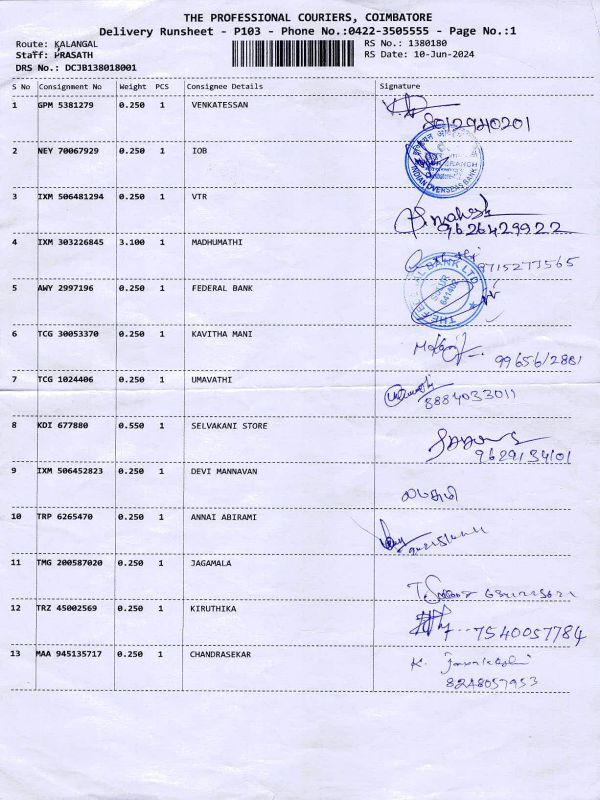 THE PROFESSIONAL COURIERS, COIMBATORE
Delivery Runsheet - P103 - Phone No.:0422-3505555 - Page No.:1
Route: KALANGAL
RS No.: 1380180
Staff: PRASATH
RS Date: 10-Jun-2024
DRS No.: DCJB138018001
S No Consignment No Weight PCS Consignee Details Signature
1 GPM 5381279 0.250 1 VENKATESSAN
8012940201
2 NEY 70067929 0.250 1 IOB
INDIAN OVERSEAS BANK
3 IXM 506481294 0.250 1 VTR
9626429922
4 IXM 303226845 3.100 1 MADHUMATHI
9715277565
5 AWY 2997196 0.250 1 FEDERAL BANK
THE FEDERAL BANK LTD
SULUR
6 TCG 30053370 0.250 1 KAVITHA MANI
7 TCG 1024406 0.250 1 UMAVATHI
8884033011
8 KDI 677880 0.550 1 SELVAKANI STORE
9629134101
9 IXM 506452823 0.250 1 DEVI MANNAVAN
10 TRP 6265470 0.250 1 ANNAI ABIRAMI
11 TMG 200587020 0.250 1 JAGAMALA
12 TRZ 45002569 0.250 1 KIRUTHIKA
7540057784
13 MAA 945135717 0.250 1 CHANDRASEKAR
8248057953